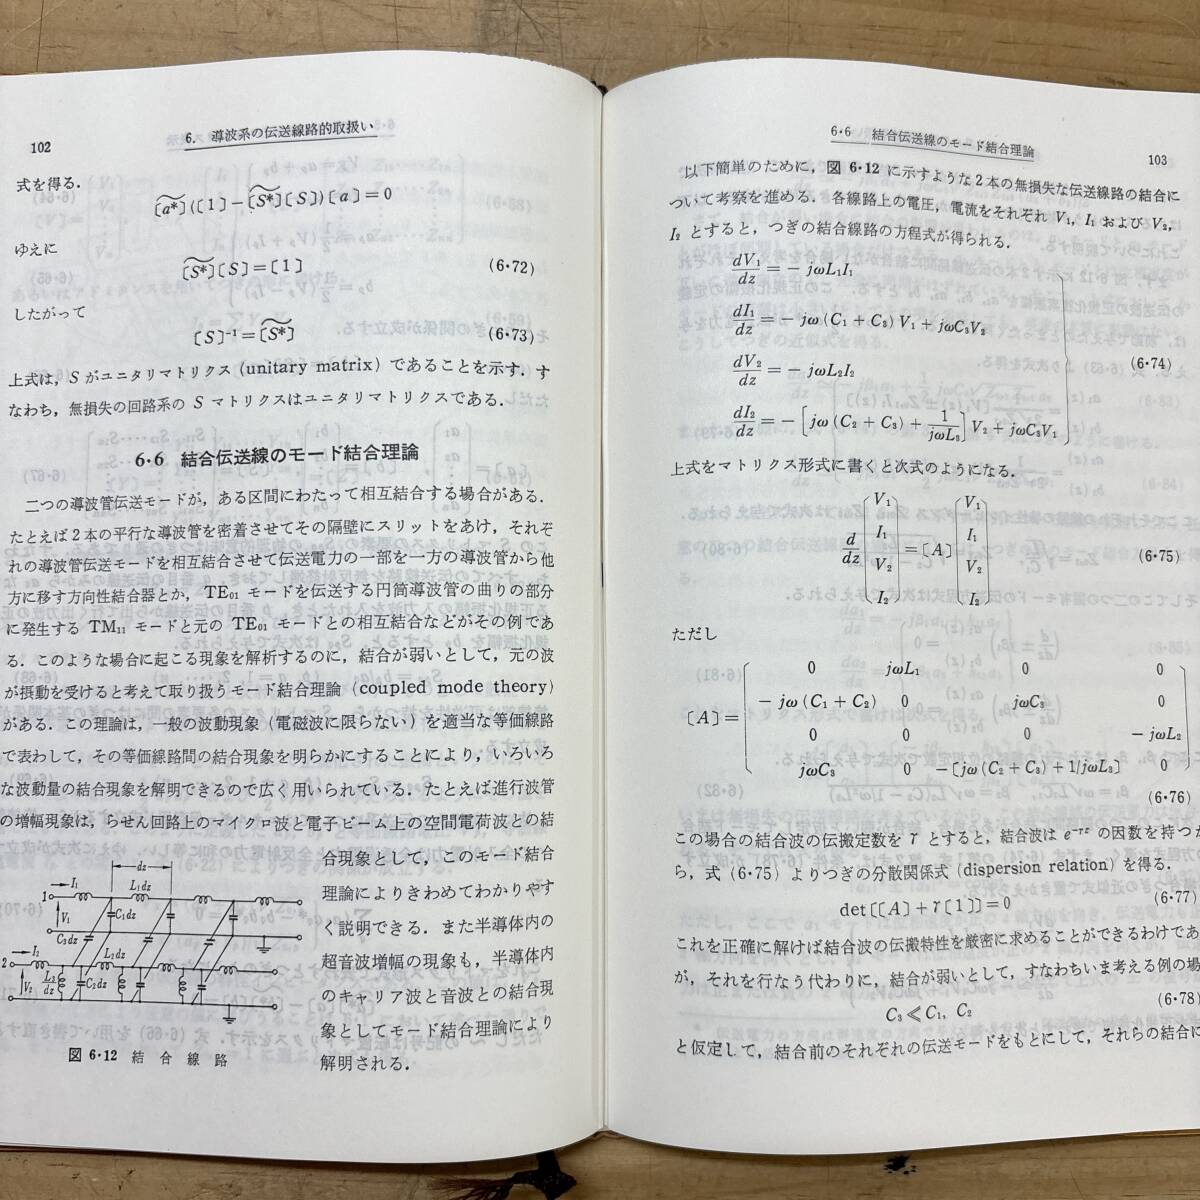 102
6. 導波系の伝送線路的取扱い
式を得る.
[a*]([1]-[S*][S])[a]=0
ゆえに
[S*][S]=[1] (6・72)
したがって
[S]-1=[S*] (6・73)
上式は, S がユニタリマトリクス (unitary matrix) であることを示す. す
なわち, 無損失の回路系の S マトリクスはユニタリマトリクスである.
6・6 結合伝送線のモード結合理論
二つの導波管伝送モードが, ある区間にわたって相互結合する場合がある.
たとえば2本の平行な導波管を密着させてその隔壁にスリットをあけ, それぞ
れの導波管伝送モードを相互結合させて伝送電力の一部を一方の導波管から他
方に移す方向性結合器とか, TE01 モードを伝送する円筒導波管の曲りの部分
に発生する TM11 モードと元の TE01 モードとの相互結合などがその例であ
る. このような場合に起こる現象を解析するのに, 結合が弱いとして, 元の波
が摂動を受けると考えて取り扱うモード結合理論 (coupled mode theory)
がある. この理論は, 一般の波動現象 (電磁波に限らない) を適当な等価線路
で表わして, その等価線路間の結合現象を明らかにすることにより, いろいろ
な波動量の結合現象を解明できるので広く用いられている. たとえば進行波管
の増幅現象は, らせん回路上のマイクロ波と電子ビーム上の空間電荷波との結
合現象として, このモード結合
理論によりきわめてわかりやす
く説明できる. また半導体内の
超音波増幅の現象も, 半導体内
のキャリア波と音波との結合現
象としてモード結合理論により
解明される.
dz
I1 L1dz
1
V1 C1dz
C3dz
I2 L2dz
2
V2 L3/dz C2dz
図 6・12 結合線路
6・6 結合伝送線のモード結合理論
103
以下簡単のために, 図 6・12 に示すような2本の無損失な伝送線路の結合に
ついて考察を進める. 各線路上の電圧, 電流をそれぞれ V1, I1 および V2,
I2 とすると, つぎの結合線路の方程式が得られる.
dV1/dz = - jωL1I1
dI1/dz = - jω (C1 + C3) V1 + jωC3V2
dV2/dz = - jωL2I2
(6・74)
dI2/dz = - [jω (C2 + C3) + 1/jωL3] V2 + jωC3V1
上式をマトリクス形式に書くと次式のようになる.
d/dz [V1 I1 V2 I2] = [A] [V1 I1 V2 I2] (6・75)
ただし
0 jωL1 0 0
- jω (C1 + C2) 0 jωC3 0
[A]=
0 0 0 - jωL2
jωC3 0 - [jω (C2 + C3) + 1/jωL3] 0
(6・76)
この場合の結合波の伝搬定数を γ とすると, 結合波は e-γz の因数を持つか
ら, 式 (6・75) よりつぎの分散関係式 (dispersion relation) を得る.
det[[A] + γ[1]] = 0 (6・77)
これを正確に解けば結合波の伝搬特性を厳密に求めることができるわけであ
が, それを行なう代わりに, 結合が弱いとして, すなわちいま考える例の場
C3 ≪ C1, C2 (6・78)
と仮定して, 結合前のそれぞれの伝送モードをもとにして, それらの結合に